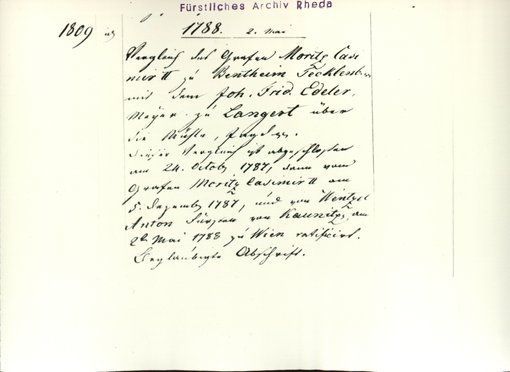 Fürstliches Archiv Rheda
1809 1788. 2. Mai
Vergleich des Grafen Moritz Casi
mir II zu Bentheim Tecklenburg
mit dem Joh. Frid. Edeler,
Meyer zu Langert über
die Mühle, Jagd
Dieser Vergleich ist abgeschlossen
am 24. Octob 1787, dann vom
Grafen Moritz Casimir II am
5 Dezember 1787, und von Wentzel
Anton Fürsten von Kaunitz, am
2t Mai 1788 zu Wien ratificirt.
Beglaubigte Abschrift.